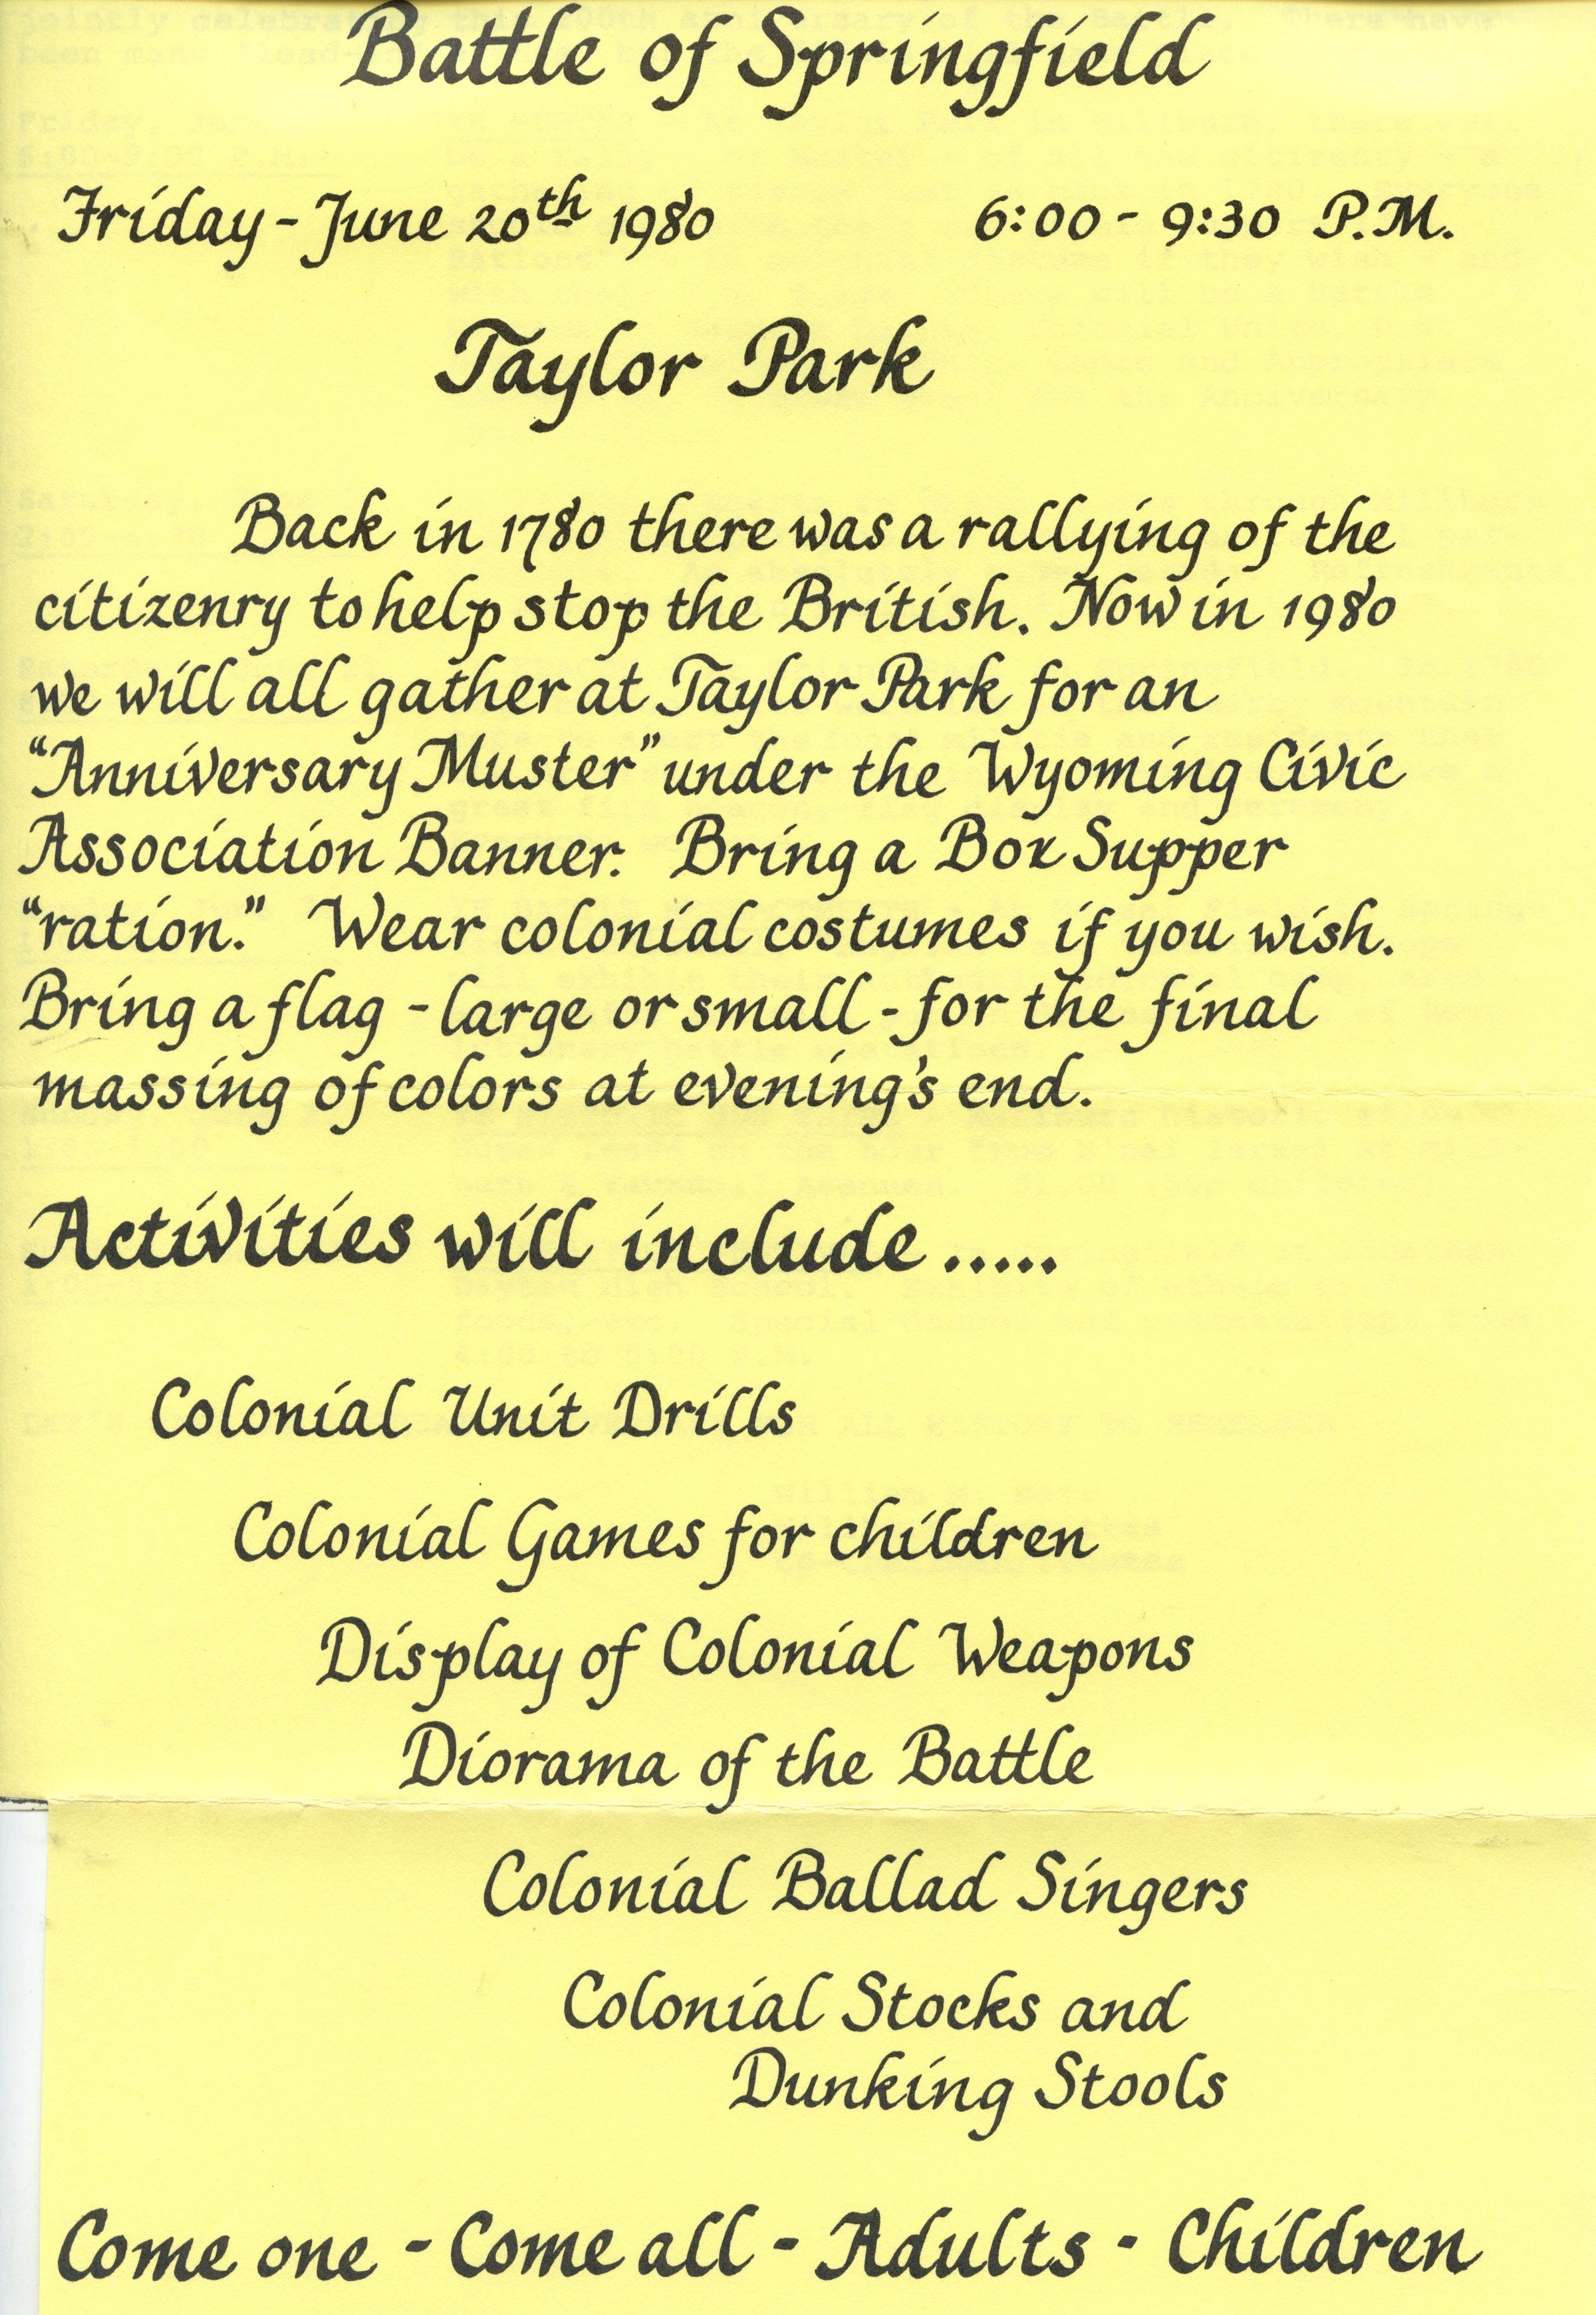 Battle of Springfield
Friday - June 20th 1980 6:00 - 9:30 P.M.
Taylor Park
Back in 1780 there was a rallying of the
citizenry to help stop the British. Now in 1980
we will all gather at Taylor Park for an
"Anniversary Muster" under the Wyoming Civic
Association Banner. Bring a Box Supper
"ration." Wear colonial costumes if you wish.
Bring a flag - large or small - for the final
massing of colors at evening's end.
Activities will include.....
Colonial Unit Drills
Colonial Games for children
Display of Colonial Weapons
Diorama of the Battle
Colonial Ballad Singers
Colonial Stocks and
Dunking Stools
Come one - Come all - Adults - Children